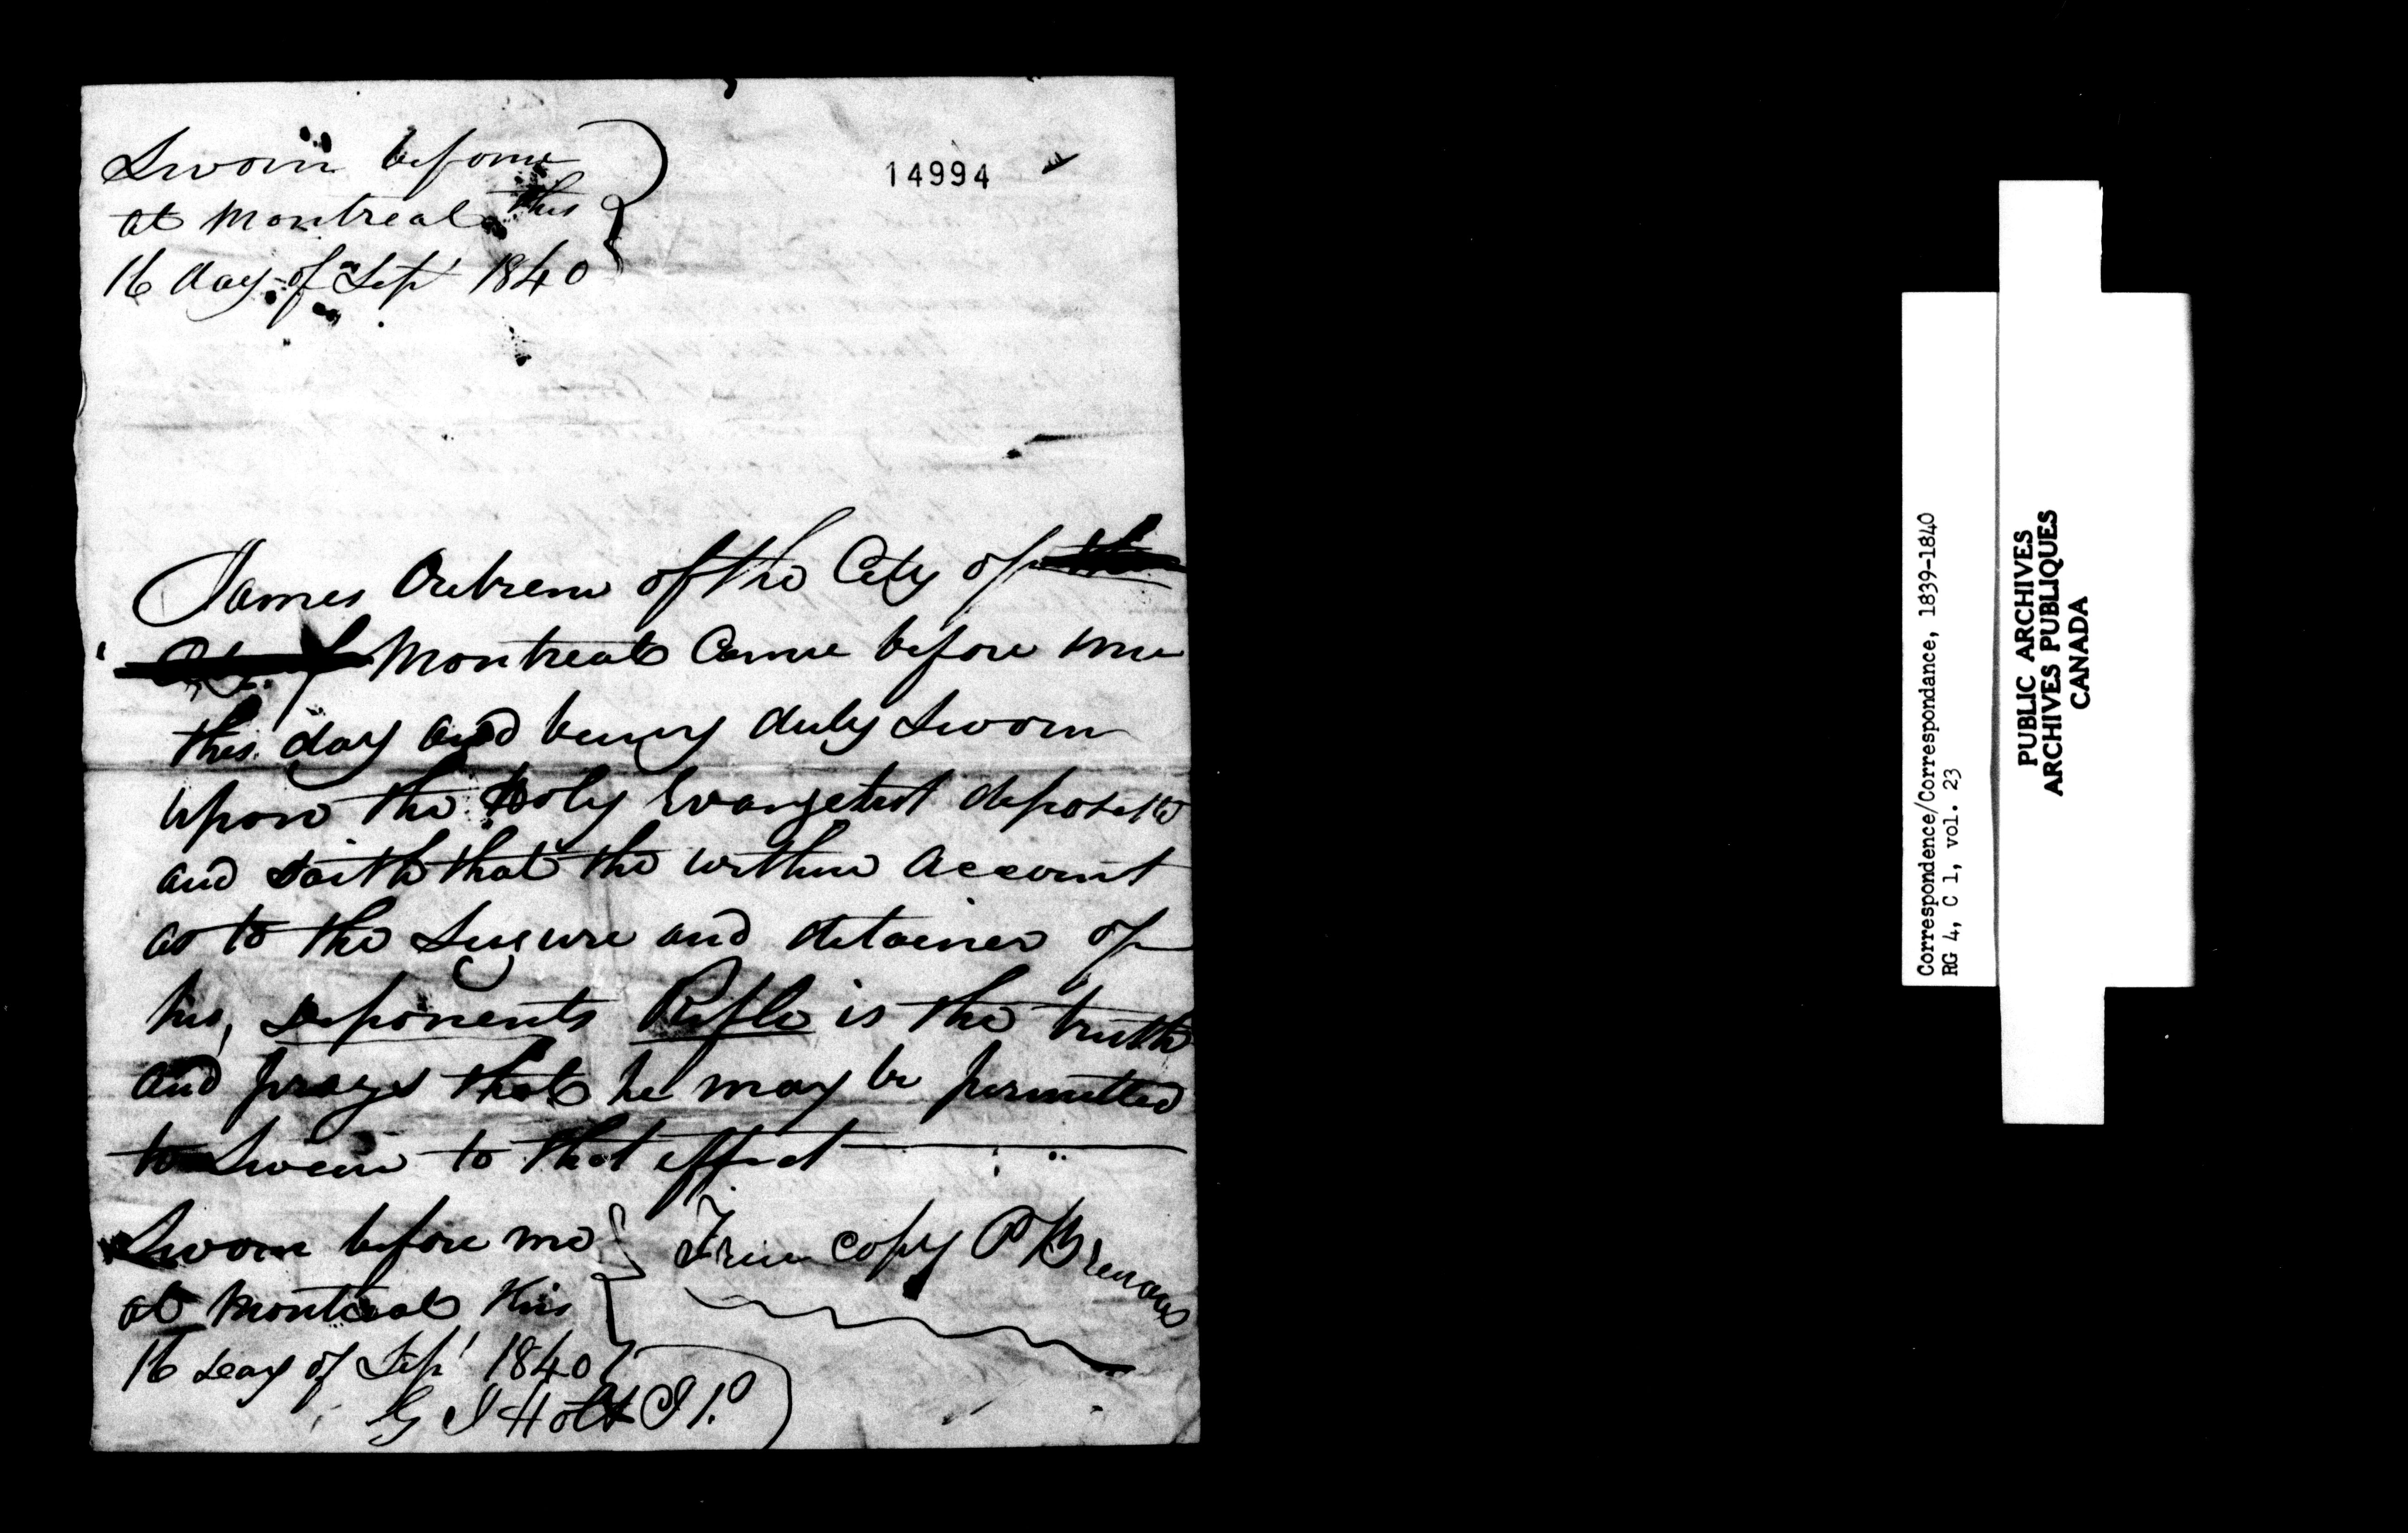 Sworn before
at Montreal this
16 day of Sep' 1840
14994
James Outrem of the City of the
City of Montreal Came before me
this day and being duly Sworn
upon the Holy Evangelist deposeth
and saith that the within Account
as to the Seizure and detainer of
his, deponents Rifle is the truth
and prays that he may be permitted
to Swear to that effect
Sworn before me
at Montreal this
16 day of Sep' 1840
G J Holt J P.
True copy P Brenan
Correspondence/Correspondance, 1839-1840
RG 4, C 1, vol. 23
PUBLIC ARCHIVES
ARCHIVES PUBLIQUES
CANADA